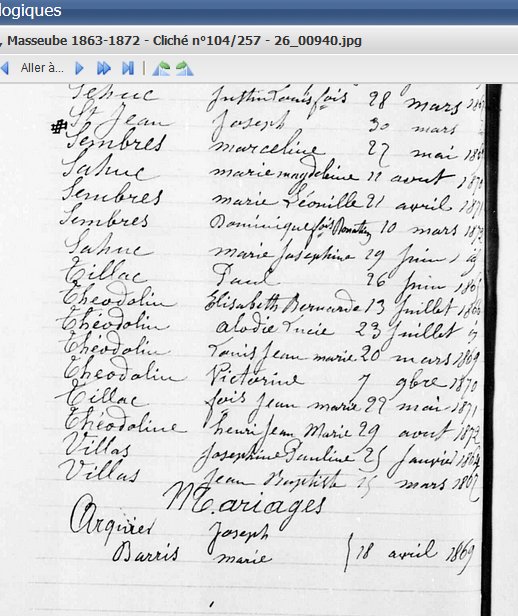 logiques
, Masseube 1863-1872 - Cliché n°104/257 - 26_00940.jpg
Aller à...
Sehuc Justin Louis fois 28 mars
# St Jean Joseph 30 mars
Sembres marceline 27 mai
Sahuc marie magdeleine 12 avout 1870
Sembres marie Léonille 21 avril 1871
Sembres Dominique fois 10 mars 1872
Sahuc marie Josephine 29 Juin
Tillac Paul 26 Juin
Théodolin Elisabeth Bernarde 13 Juillet
Théodolin Elodie Lucie 23 Juillet
Théodolin Louis Jean marie 20 mars 1869
Théodolin Victorine 7 9bre 1870
Tillac fois Jean marie 22 mai 1871
Théodoline henri Jean Marie 29 avout 1872
Villas Josephine Pauline 25 Janvier
Villas Jean Baptiste 15 mars
Mariages
Arquier Joseph
Barris marie } 18 avril 1869